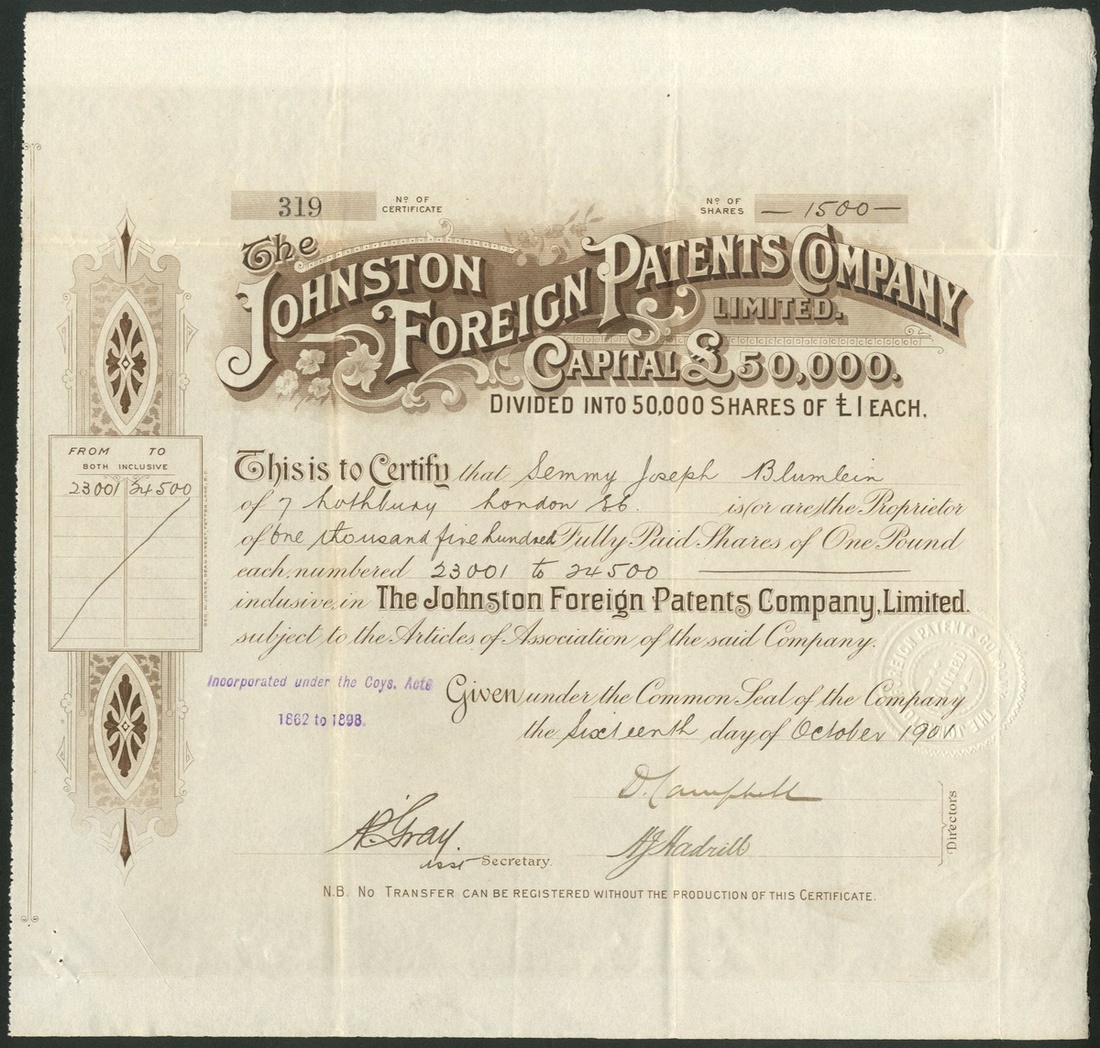 319 Nº OF CERTIFICATE Nº OF SHARES — 1500 —
The
JOHNSTON FOREIGN PATENTS COMPANY
LIMITED.
CAPITAL £50,000.
DIVIDED INTO 50,000 SHARES OF £1 EACH.
FROM TO
BOTH INCLUSIVE
23001 24500
This is to Certify that Semmy Joseph Blumlein
of 7 Lothbury London EC. is (or are) the Proprietor
of One thousand five hundred Fully Paid Shares of One Pound
each, numbered 23001 to 24500
inclusive, in The Johnston Foreign Patents Company, Limited.
subject to the Articles of Association of the said Company.
Incorporated under the Coys. Acts
1862 to 1898.
Given under the Common Seal of the Company
the Sixteenth day of October
D. Campbell
Directors
Gray.
Asst Secretary.
Hadrill
N.B. NO TRANSFER CAN BE REGISTERED WITHOUT THE PRODUCTION OF THIS CERTIFICATE.